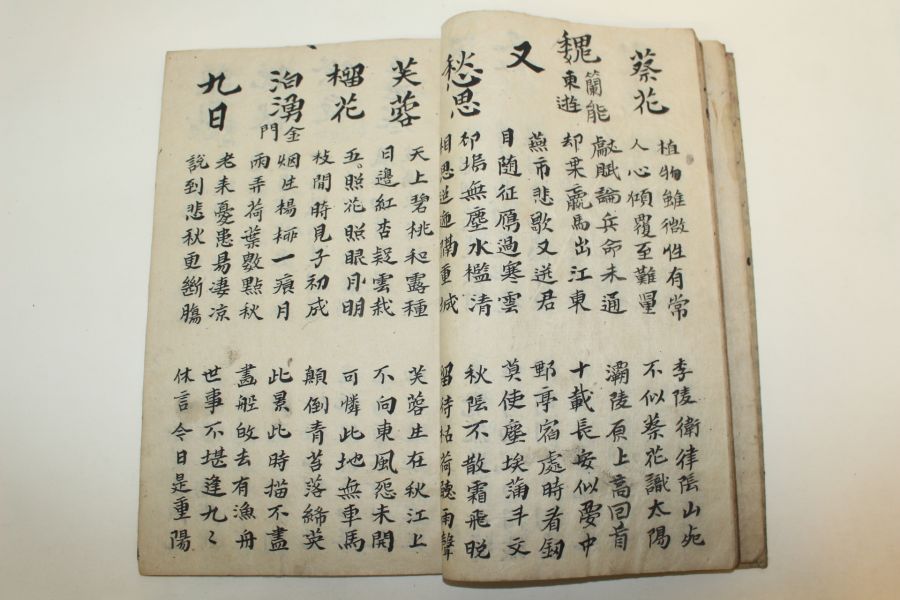 蔡花
植物雖微性有常
李陵衛律陰山死
人心傾覆至難量
不似蔡花識太陽
魏蘭能東遊
獻賦論兵命未通
灞陵原上高回首
却乘羸馬出江東
十載長安似夢中
又
燕市悲歌又送君
郵亭宿處時看釼
目隨征鴈過寒雲
莫使塵埃蒲斗文
愁思
塢無塵水檻清
秋陰不散霜飛晚
相思迢遞隔重城
留待枯荷聽雨聲
芙蓉
天上碧桃和露種
芙蓉生在秋江上
日邊紅杏疑雲栽
不向東風怨未開
榴花
五。照花照眼明
可憐此地無車馬
枝間時見子初成
顛倒青苔落締英
泊湧金門
烟生楊柳一痕月
此景此時描不盡
雨弄荷葉數點秋
畵船去有漁舟
九日
老來憂患易凄凉
世事不堪逢九〻
說到悲秋更斷膓
休言今日是重陽